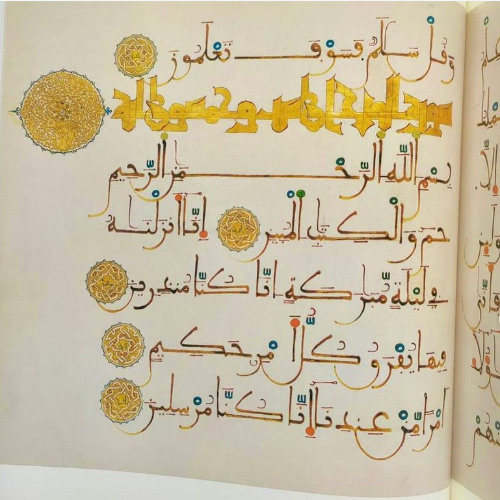 وَقُلْ سَلَٰمٌ فَسَوْفَ تَعْلَمُونَ
سورة الدخان ست وخمسون آية
بِسْمِ اللَّهِ الرَّحْمَٰنِ الرَّحِيمِ
حمٓ وَالْكِتَٰبِ الْمُبِينِ إِنَّا أَنزَلْنَٰهُ
فِي لَيْلَةٍ مُّبَٰرَكَةٍ إِنَّا كُنَّا مُنذِرِينَ
فِيهَا يُفْرَقُ كُلُّ أَمْرٍ حَكِيمٍ
أَمْرًا مِّنْ عِندِنَا إِنَّا كُنَّا مُرْسِلِينَ